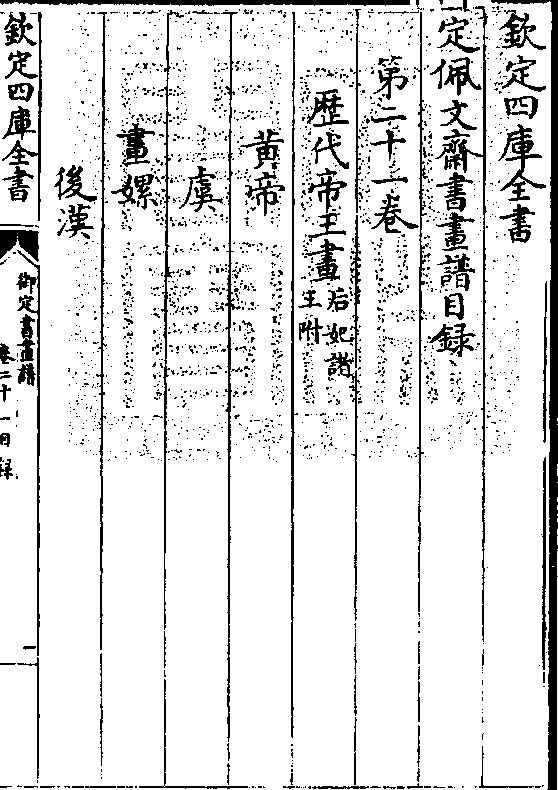 欽定四庫全書
定佩文齋書畫譜目録
第二十一卷
歴代帝王畫后妃諸王附
黄帝
虞
畫嫘
後漢
欽定四庫全書
御定書畫譜
卷二十一目録
一